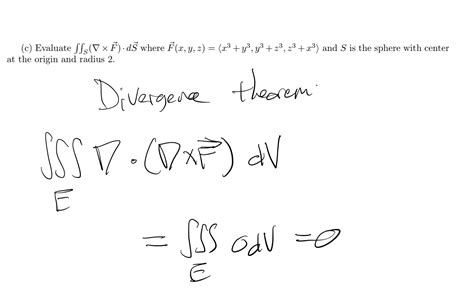 (c) Evaluate ∬_S(∇ × F⃗) · dS⃗ where F⃗(x, y, z) = ⟨x³ + y³, y³ + z³, z³ + x³⟩ and S is the sphere with center
at the origin and radius 2.
Divergence theorem.
∭_E ∇ · (∇×F⃗) dV
= ∭_E 0 dV = 0